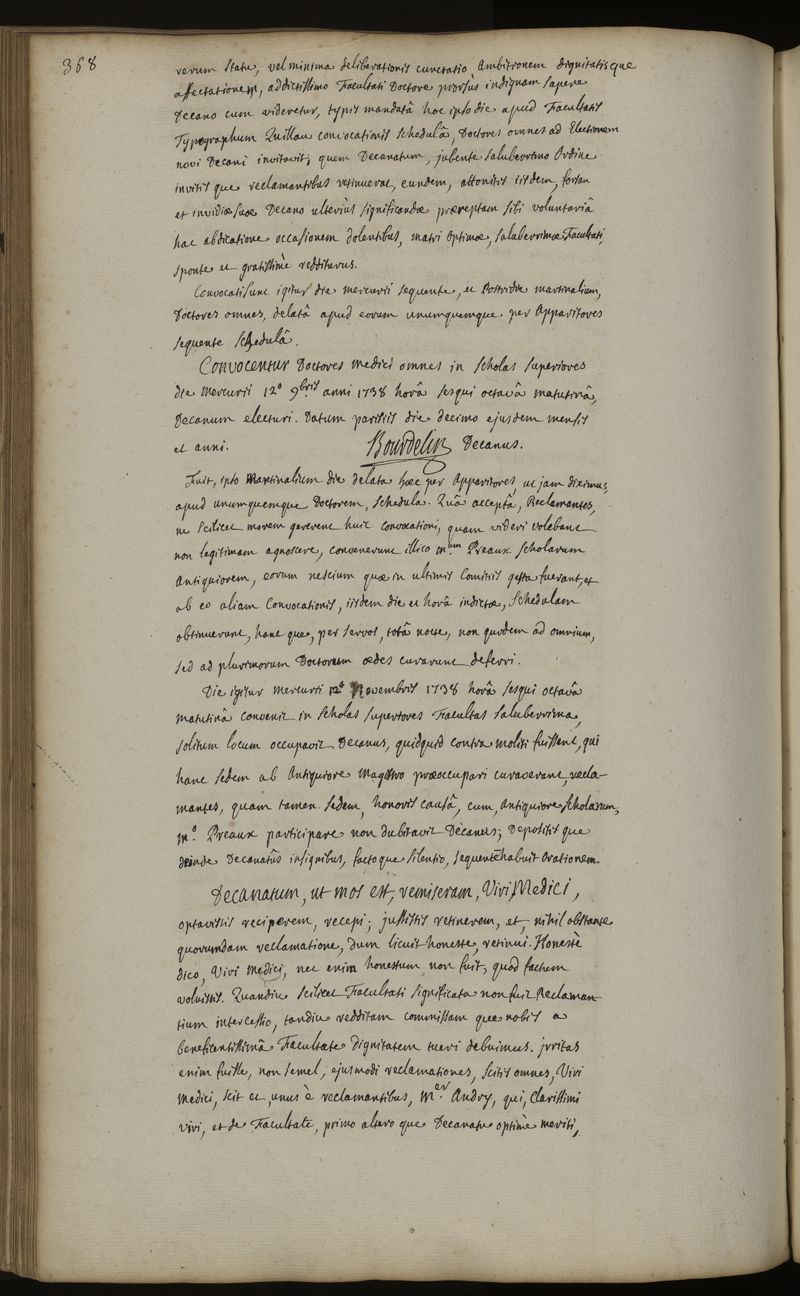 368
rerum statu, vel minima deliberationis cunctatio ambitionem dignitatisque
affectationem, addictissimo Facultati Doctore prorsùs indignam sapere
Decano cum videretur, typis mandatâ hoc ipso die apud Facultatis
Typographum Quillau convocationis schedulâ, Doctores omnes ad Electionem
novi Decani invitavit; quem Decanatum, jubente saluberrimo Ordine
invitis que reclamantibus retinuerat, eundem, attonitis iisdem, forsan
et invidiæ suæ Decano ulteriùs significandæ præreptam sibi voluntariâ
hac abdicatione occasionem dolentibus, matri optimæ, saluberrimæ Facultati,
sponte et gratissimè redditurus.
Convocati sunt igitur die mercurii sequente, et Postridie martinalium,
Doctores omnes, delatâ apud eorum unumquemque per Apparitores
sequente schedulâ.
Convocentur Doctores medici omnes in scholas superiores
die mercurii 12º 9bris anni 1738 horâ sesqui octavâ matutinâ,
Decanum electuri. Datum parisiis die decimo ejusdem mensis
et anni. Bourdelin Decanus.
Fuit, ipso Martinalium die delata hæc per Apparitores, ut jam diximus,
apud unumquemque Doctorem, schedula. Quâ acceptâ, Reclamantes,
ne scilicet morem gererent huic convocationi, quam videri volebant
non legitimam agnoscere, convenerunt illico mum Preaux scholarum
Antiquiorem, eorum nescium quæ in ultimis Comitiis gesta fuerant, et
ab eo aliam Convocationis, iisdem die et horâ indictæ, schedulam
obtinuerunt, hanc que, per servos, totâ nocte, non quidem ad omnium,
sed ad plurimorum Doctorum ædes curarunt deferri.
Die igitur mercurii 12º Novembris 1738 horâ sesqui octavâ
matutinâ convenit in scholas superiores Facultas saluberrima,
solitum locum occupavit Decanus, quidquid contra moliti fuissent, qui
hanc sedem ab Antiquiore Magistro præoccupari curaverant, recla-
mantes, quam tamen sedem, honoris causâ, cum Antiquiore scholarum,
mº. Preaux participare non dubitavit Decanus; Depositis que
deinde Decanatûs insignibus, facto que silentio, sequentē habuit Orationem.
Decanatum, ut mos est, remiseram, Viri Medici,
optavistis reciperem, recepi; jussistis retinerem, et, nihil obstante
quorumdam reclamatione, dum licuit honeste, retinui. Honestè
dico, Viri Medici, nec enim honestum non fuit, quod factum
voluistis. Quandiu scilicet Facultati significata non fuit Reclaman-
tium intercessio, tandiu redditam commissam que nobis a
beneficentissimâ Facultate Dignitatem tueri debuimus. jrritas
enim fuisse, non semel, ejusmodi reclamationes, scitis omnes, Viri
Medici, scit et, unus è reclamantibus, Mer. Andry, qui, Clarissimi
viri, et de Facultate, primo altero que Decanatu optimè meriti,